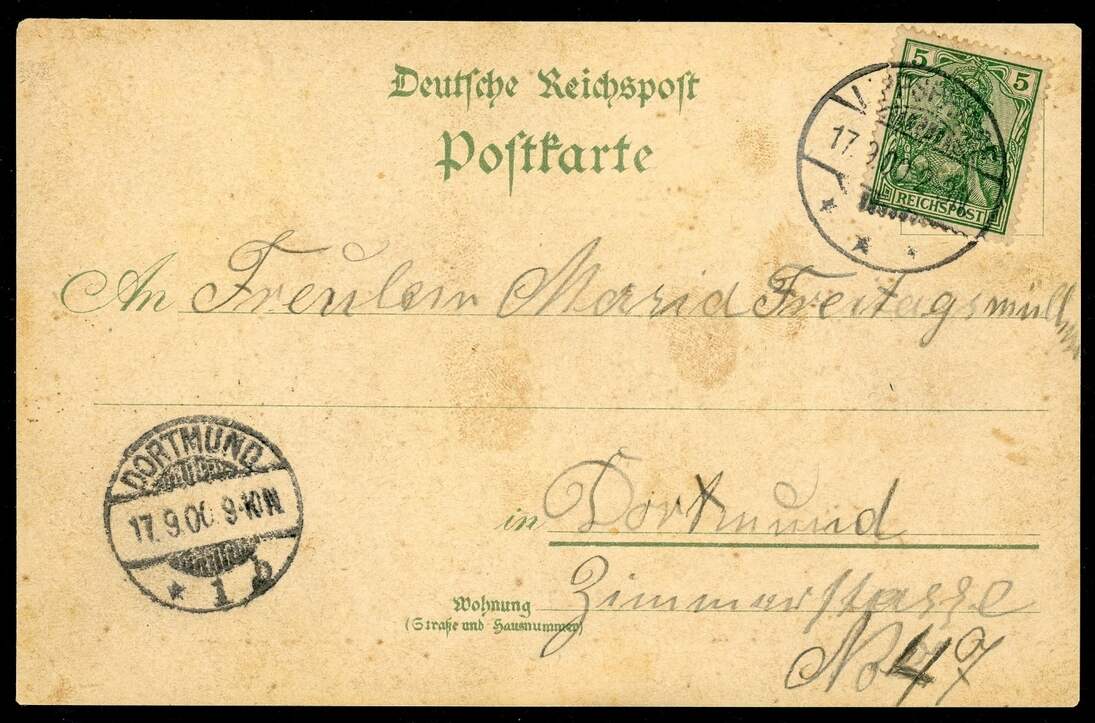 Deutsche Reichspost
Postkarte
5 5
REICHSPOST
17.9.00
An Freulein Maria Freitagsmüller
DORTMUND
17.9.00 9-10N
* 1 b
in Dortmund
Wohnung
(Straße und Hausnummer)
Zimmerstasse
No 47